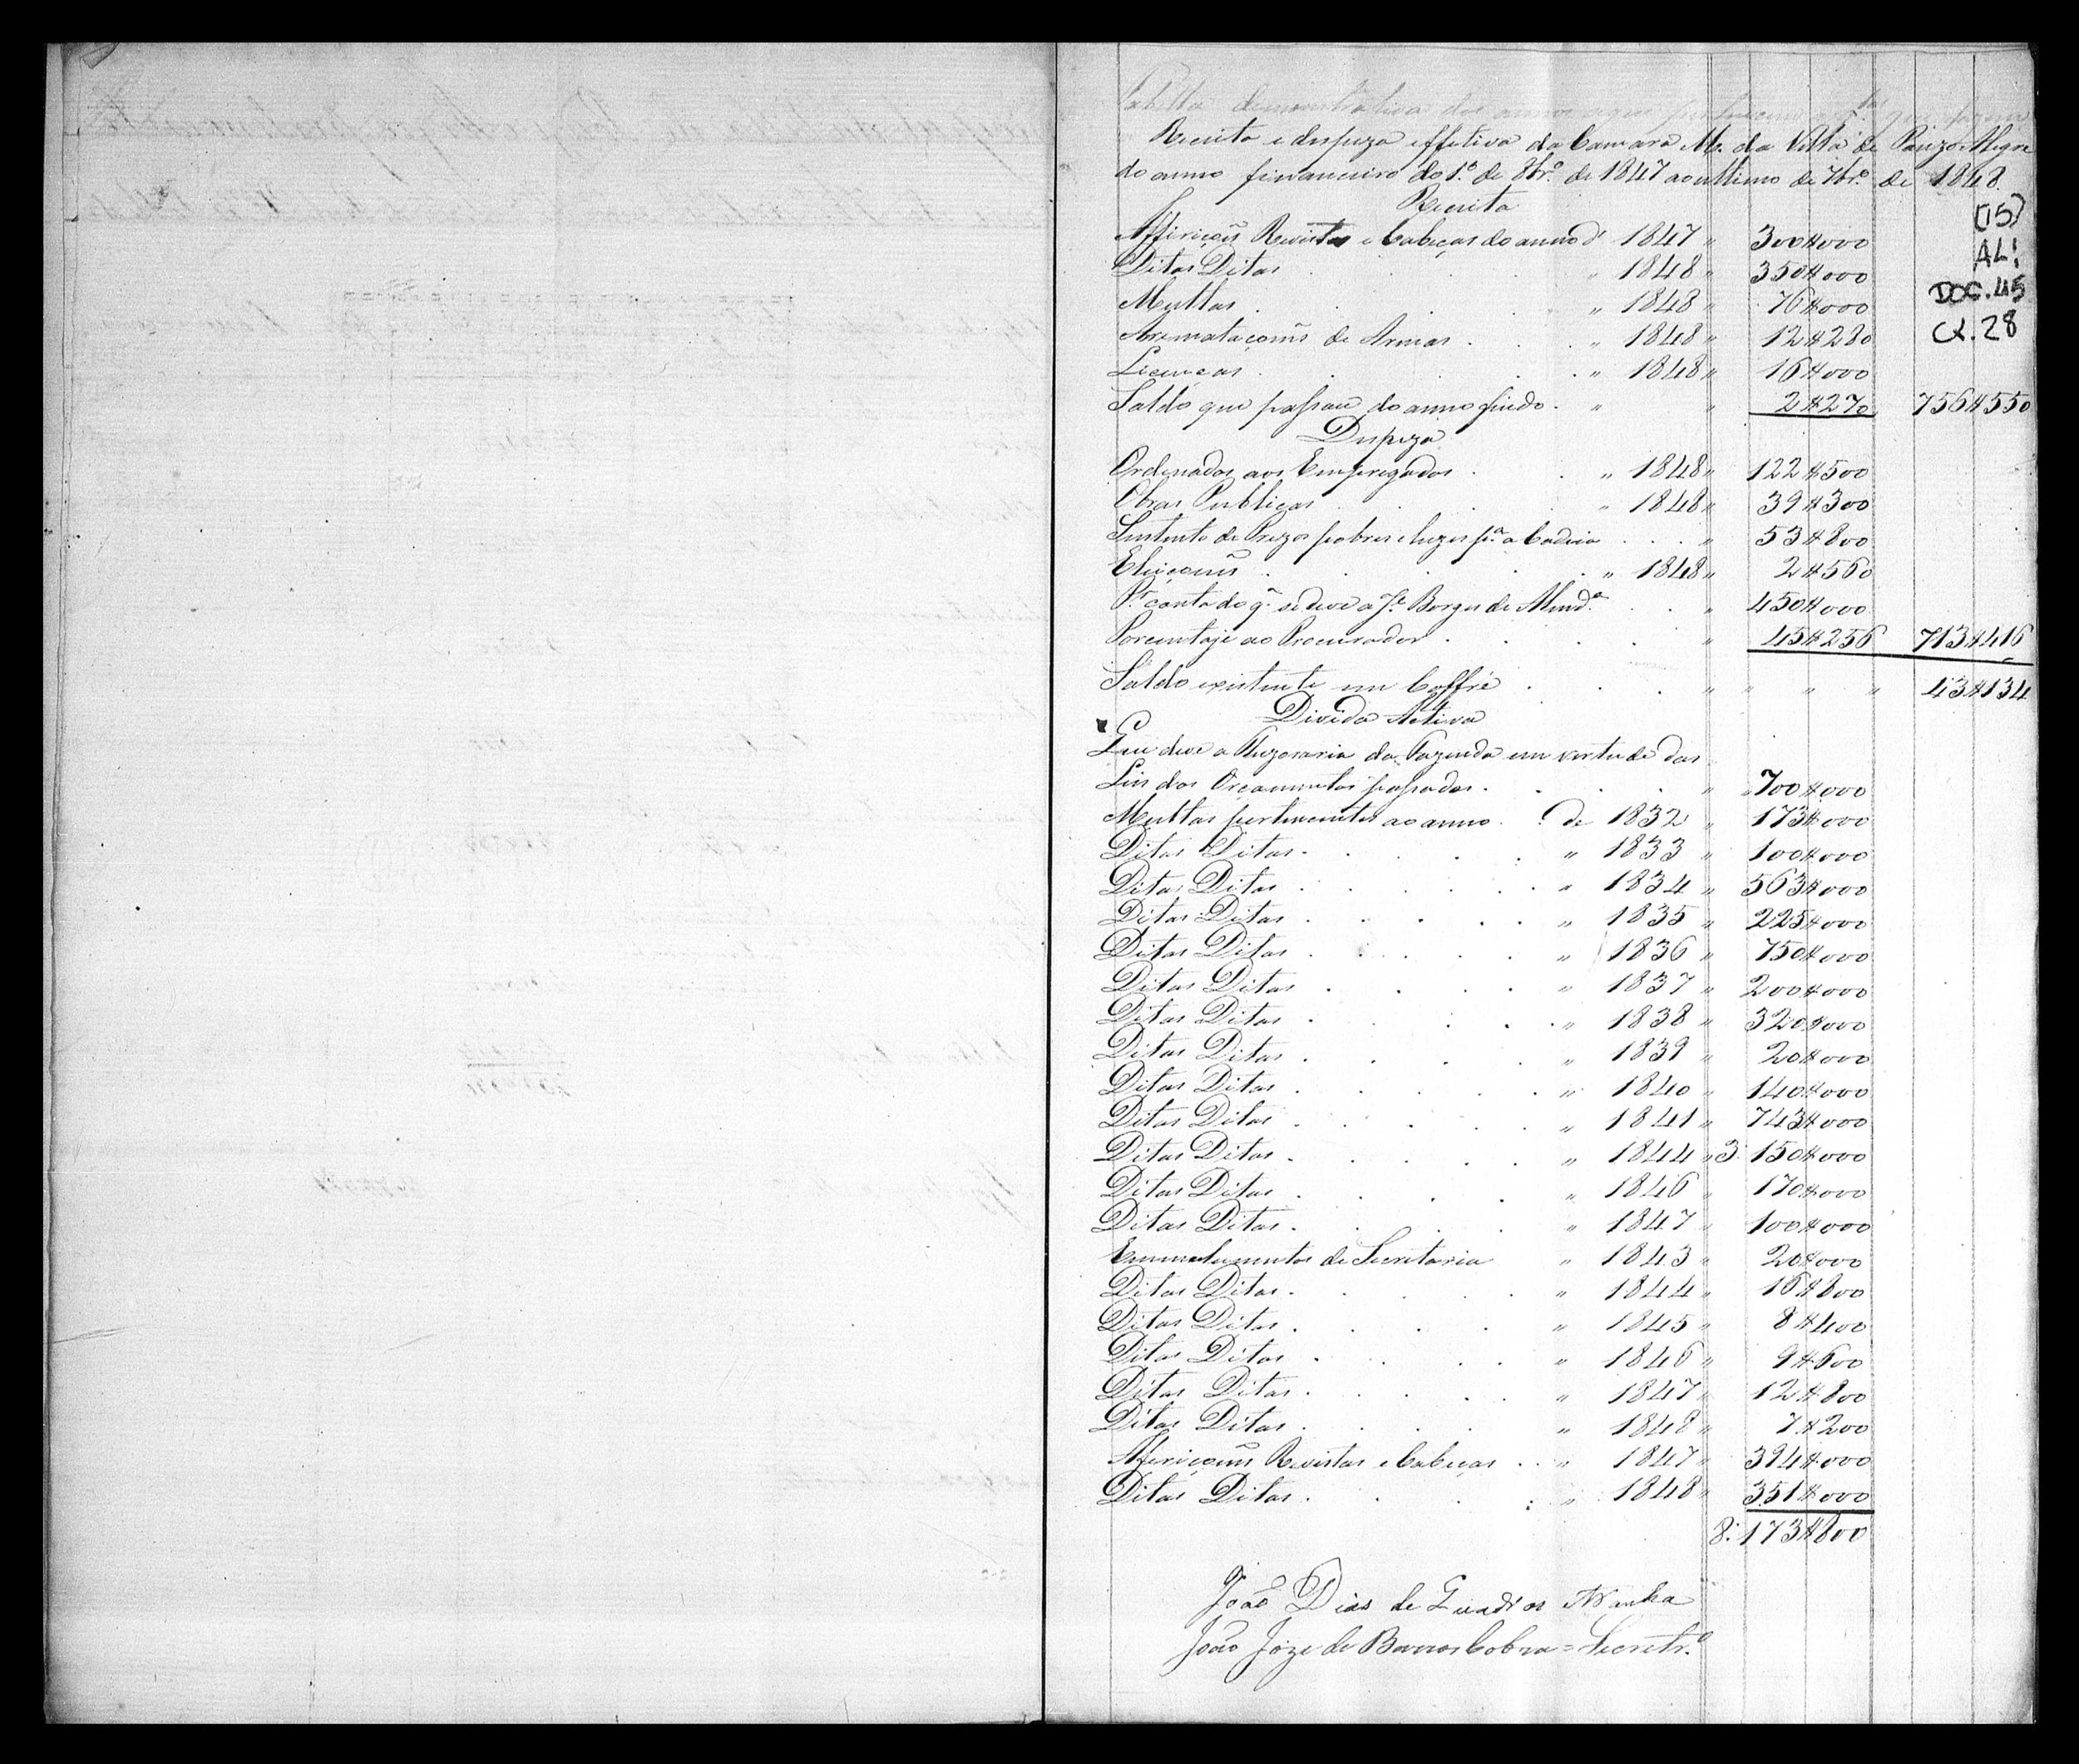 Tabella demonstrativa dos annos a que pertencem
Receita e despeza effetiva da Camara M. da Villa de Pouzo Alegre
do anno financeiro do 1.º de 8br.º de 1847 ao ultimo de 7br.º de 1848.
Receita
(15)
AL!
DOC. 45
CX. 28
Affiriçoẽs Revistas e Cabeças do anno d' 1847 " 300#000
Ditas Ditas " 1848 " 350#000
Multas " 1848 " 76#000
Arematacoens de Armas " 1848 " 12#280
Licencas " 1848 " 16#000
Saldo que passou do anno findo " " 2#270 756#550
Despeza
Ordenados aos Empregados " 1848 " 122#500
Obras Publicas " 1848 " 39#300
Sustento de Prezos pobres e luzes p.ª a Cadeia " 53#800
Eleiçoens " 1848 " 2#560
P.r conta do q. se deve a J.e Borges de Almd.ª " 450#000
Porcentaje ao Procurador " 45#256 713#416
Saldo existente em Coffre " " " " 43#134
Divida Activa
Que deve a Thezoraria da Fazenda em vertude das
Leis dos Orçamentos passados " 700#000
Multas pertencentes ao anno de 1832 " 173#000
Ditas Ditas " 1833 " 100#000
Ditas Ditas " 1834 " 563#000
Ditas Ditas " 1835 " 225#000
Ditas Ditas " 1836 " 750#000
Ditas Ditas " 1837 " 200#000
Ditas Ditas " 1838 " 320#000
Ditas Ditas " 1839 " 20#000
Ditas Ditas " 1840 " 140#000
Ditas Ditas " 1841 " 743#000
Ditas Ditas " 1844 " 3:150#000
Ditas Ditas " 1846 " 170#000
Ditas Ditas " 1847 " 100#000
Emmolumentos de Secretaria " 1843 " 20#000
Ditas Ditas " 1844 " 16#800
Ditas Ditas " 1845 " 8#400
Ditas Ditas " 1846 " 9#600
Ditas Ditas " 1847 " 12#800
Ditas Ditas " 1848 " 7#200
Aferiçoens Revistas e Cabeças " 1847 " 394#000
Ditas Ditas " 1848 " 351#000
8:173#800
João Dias de Quadros Aranha
João Joze de Barros Cobra = Secretr.º